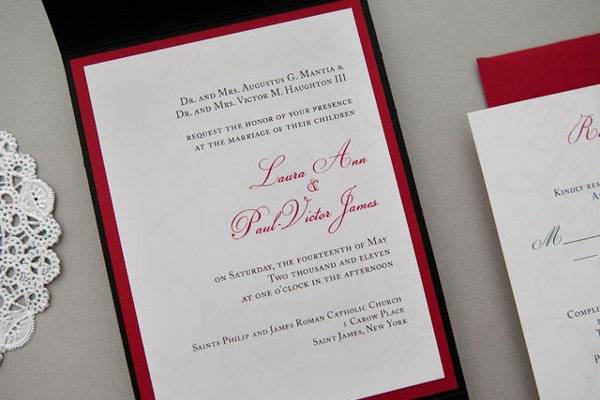 Dr. and Mrs. Augustus G. Mantia &
Dr. and Mrs. Victor M. Haughton III
request the honor of your presence
at the marriage of their children
Laura Ann
&
Paul-Victor James
on Saturday, the fourteenth of May
Two thousand and eleven
at one o'clock in the afternoon
Saints Philip and James Roman Catholic Church
1 Carow Place
Saint James, New York
Kindly
M